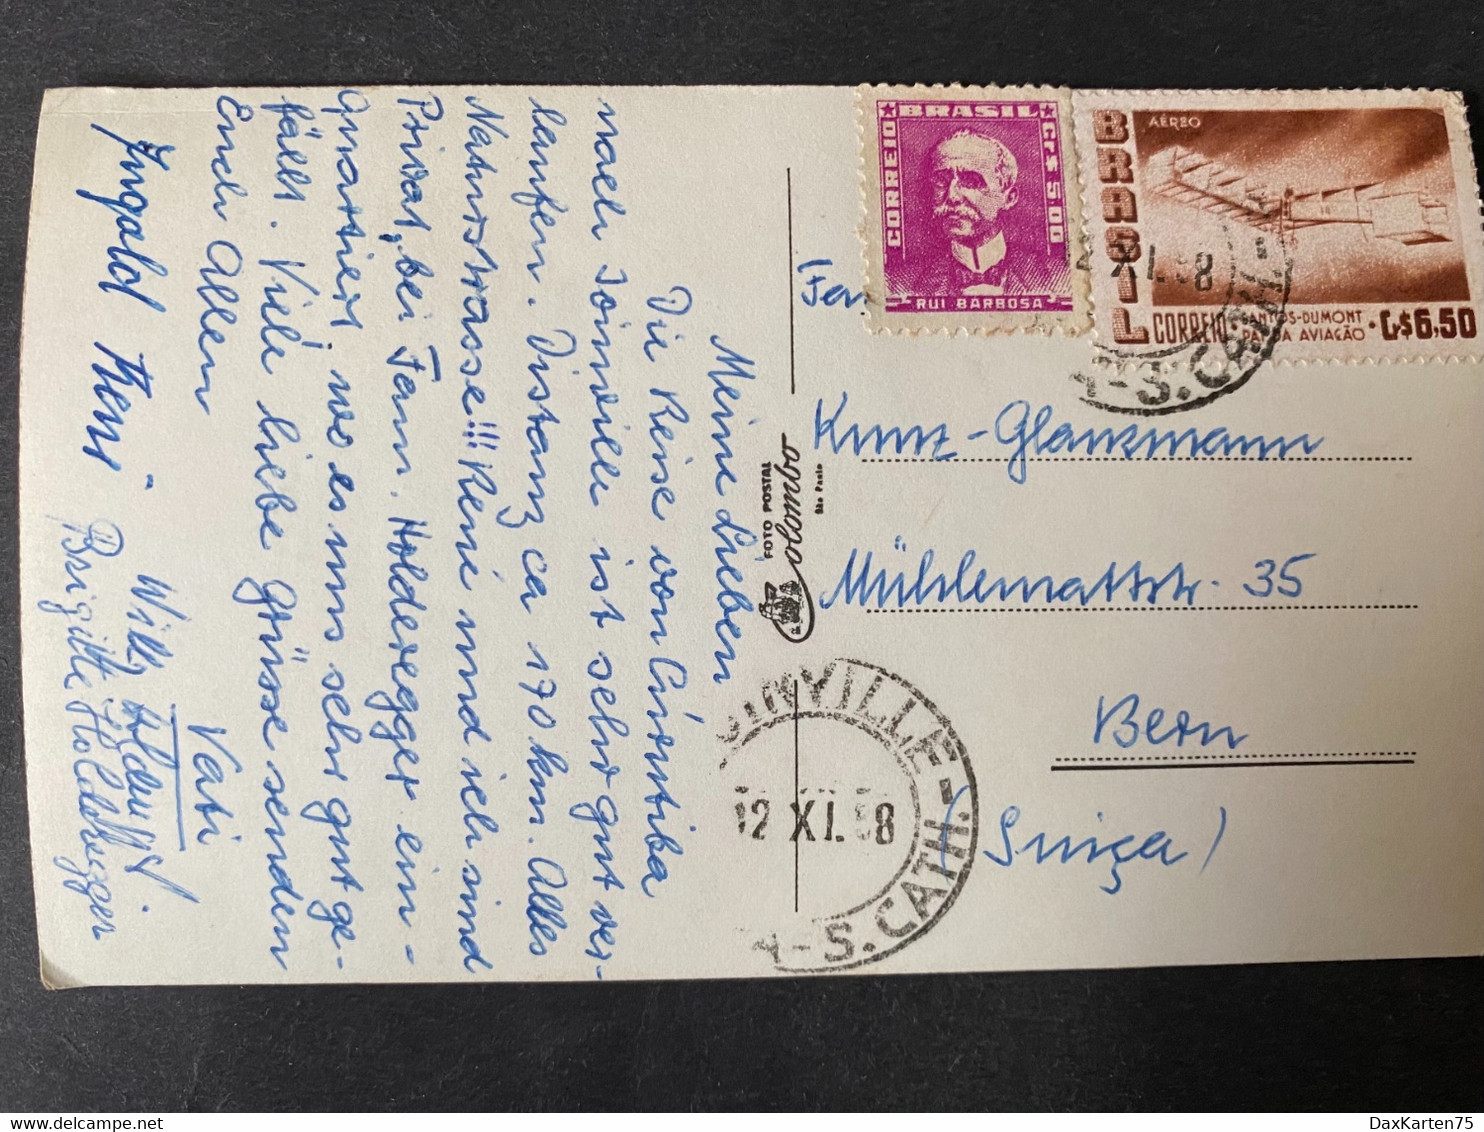 Meine Lieben
Die Reise von Curitiba
nach Joinville ist sehr gut ver-
laufen. Distanz ca 170 km. Alles
Naturstrasse!!! René und ich sind
Privat, bei Fam. Holderegger ein-
quartiert, wo es uns sehr gut ge-
fällt. Viele liebe Grüsse senden
Euch Allen
Vati
Ingold René -
Willy
Brigitte Holderegger
FOTO POSTAL
Colombo
São Paulo
CORREIO
BRASIL
Cr$ 5,00
RUI BARBOSA
BRASIL
AÉREO
CORREIO
SANTOS-DUMONT
PAI DA AVIAÇÃO
Cr$6,50
Fam
Kunz-Glanzmann
Mühlemattstr. 35
Bern
(Suiça)
JOINVILLE - S. CATH.
12 XI. 58
A - S. CATH.
DaxKarten75
delcampe.net